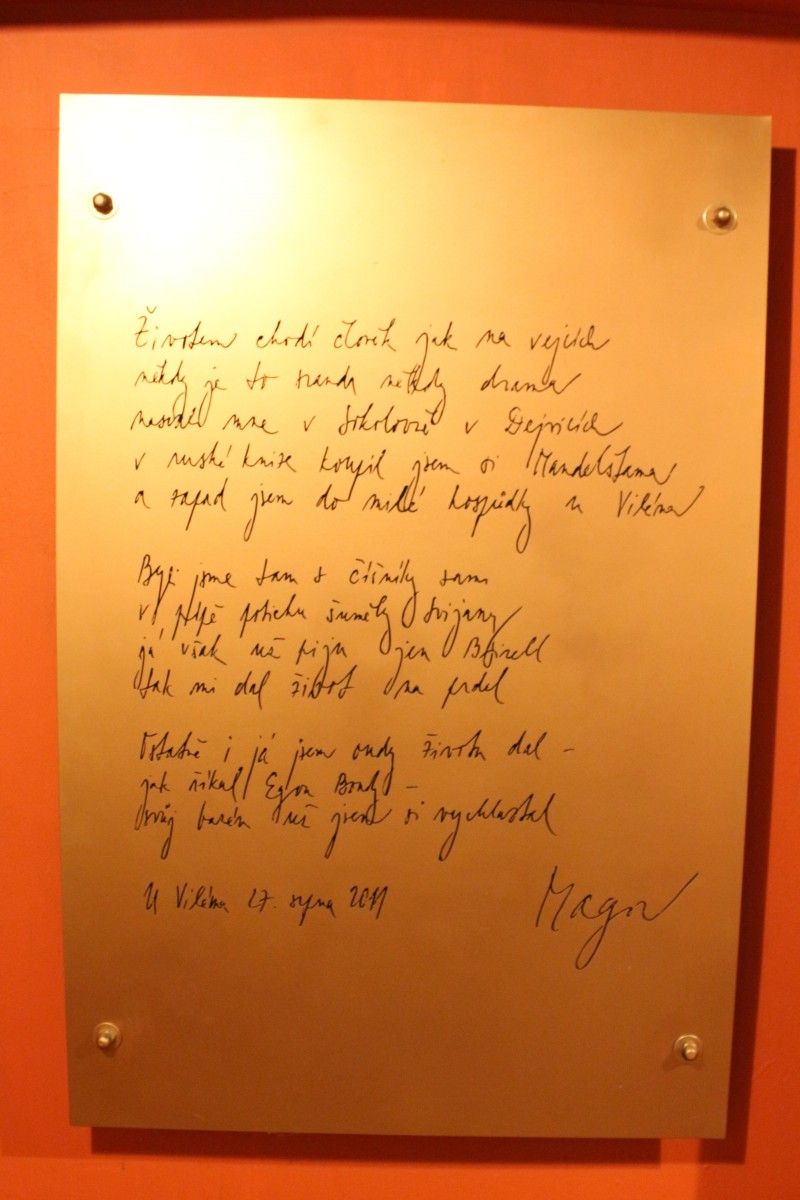 Životem chodí člověk jak na vejcích
někdy je to sranda někdy drama
v Sokolovně v Dejvicích
v ruské knize koupil jsem si Mandelštama
a zapad jsem do milé hospůdky u Viléma
Byli jsme tam s číšníky sami
v pípě potichu šuměly Svijany
já však už piju jen Birell
tak mi dal život na prdel
Ostatně i já jsem ondy životu dal –
jak říkal Egon Bondy –
svůj bazén už jsem si vychlastal
U Viléma 27. srpna 2011
Magor